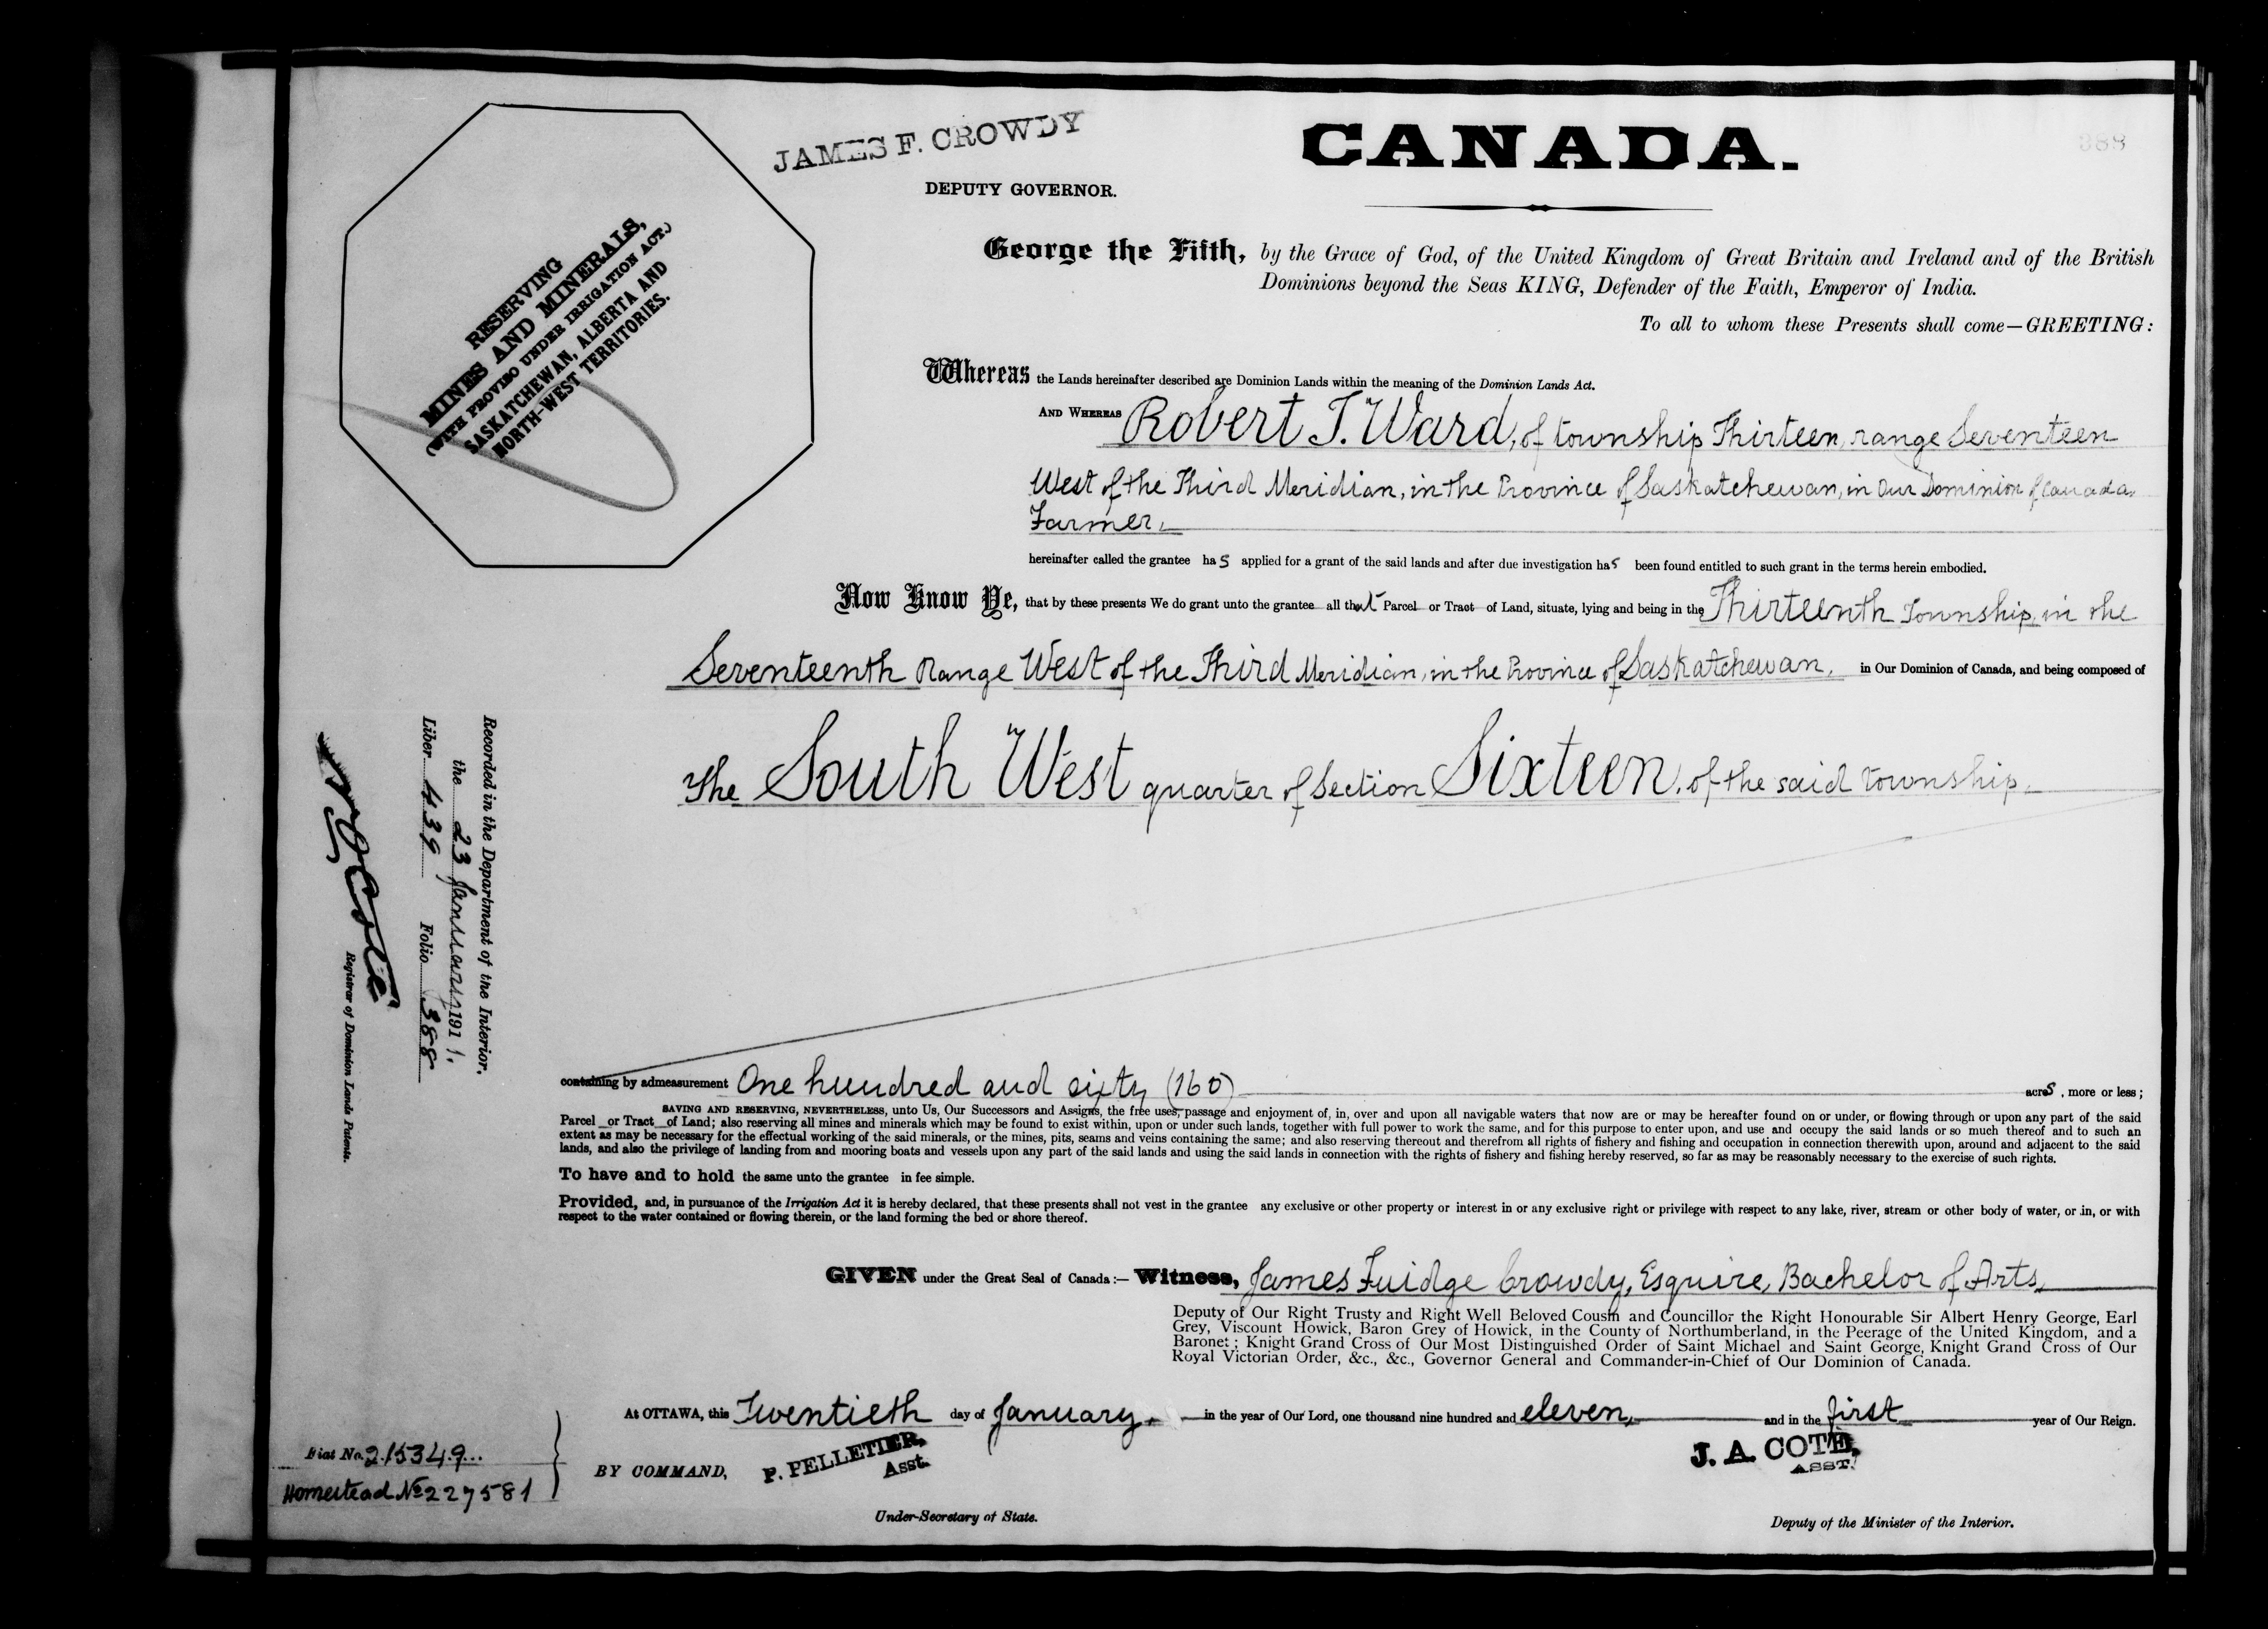 388
JAMES F. CROWDY
DEPUTY GOVERNOR.
CANADA.
RESERVING
MINES AND MINERALS,
(WITH PROVISO UNDER IRRIGATION ACT.)
SASKATCHEWAN, ALBERTA AND
NORTH-WEST TERRITORIES.
George the Fifth, by the Grace of God, of the United Kingdom of Great Britain and Ireland and of the British
Dominions beyond the Seas KING, Defender of the Faith, Emperor of India.
To all to whom these Presents shall come—GREETING:
Whereas the Lands hereinafter described are Dominion Lands within the meaning of the Dominion Lands Act.
AND WHEREAS Robert T. Ward, of township Thirteen, range Seventeen
West of the Third Meridian, in the Province of Saskatchewan, in Our Dominion of Canada,
Farmer,
hereinafter called the grantee has applied for a grant of the said lands and after due investigation has been found entitled to such grant in the terms herein embodied.
Now Know Ye, that by these presents We do grant unto the grantee all that Parcel or Tract of Land, situate, lying and being in the Thirteenth Township, in the
Seventeenth Range West of the Third Meridian, in the Province of Saskatchewan, in Our Dominion of Canada, and being composed of
The South West quarter of Section Sixteen, of the said township.
containing by admeasurement One hundred and sixty (160) acres, more or less;
SAVING AND RESERVING, NEVERTHELESS, unto Us, Our Successors and Assigns, the free uses, passage and enjoyment of, in, over and upon all navigable waters that now are or may be hereafter found on or under, or flowing through or upon any part of the said
Parcel or Tract of Land; also reserving all mines and minerals which may be found to exist within, upon or under such lands, together with full power to work the same, and for this purpose to enter upon, and use and occupy the said lands or so much thereof and to such an
extent as may be necessary for the effectual working of the said minerals, or the mines, pits, seams and veins containing the same; and also reserving thereout and therefrom all rights of fishery and fishing and occupation in connection therewith upon, around and adjacent to the said
lands, and also the privilege of landing from and mooring boats and vessels upon any part of the said lands and using the said lands in connection with the rights of fishery and fishing hereby reserved, so far as may be reasonably necessary to the exercise of such rights.
To have and to hold the same unto the grantee in fee simple.
Provided, and, in pursuance of the Irrigation Act it is hereby declared, that these presents shall not vest in the grantee any exclusive or other property or interest in or any exclusive right or privilege with respect to any lake, river, stream or other body of water, or in, or with
respect to the water contained or flowing therein, or the land forming the bed or shore thereof.
GIVEN under the Great Seal of Canada:— Witness, James Fuidge Crowdy, Esquire, Bachelor of Arts,
Deputy of Our Right Trusty and Right Well Beloved Cousin and Councillor the Right Honourable Sir Albert Henry George, Earl
Grey, Viscount Howick, Baron Grey of Howick, in the County of Northumberland, in the Peerage of the United Kingdom, and a
Baronet; Knight Grand Cross of Our Most Distinguished Order of Saint Michael and Saint George, Knight Grand Cross of Our
Royal Victorian Order, &c., &c., Governor General and Commander-in-Chief of Our Dominion of Canada.
At OTTAWA, this Twentieth day of January, in the year of Our Lord, one thousand nine hundred and eleven, and in the first year of Our Reign.
BY COMMAND, P. PELLETIER,
Asst.
Under-Secretary of State.
J. A. COTE,
ASST.
Deputy of the Minister of the Interior.
Recorded in the Department of the Interior,
the 23 January 1911.
Liber 439 Folio 388
N O Coté
Registrar of Dominion Lands Patents.
Fiat No. 215349
Homestead No 227581